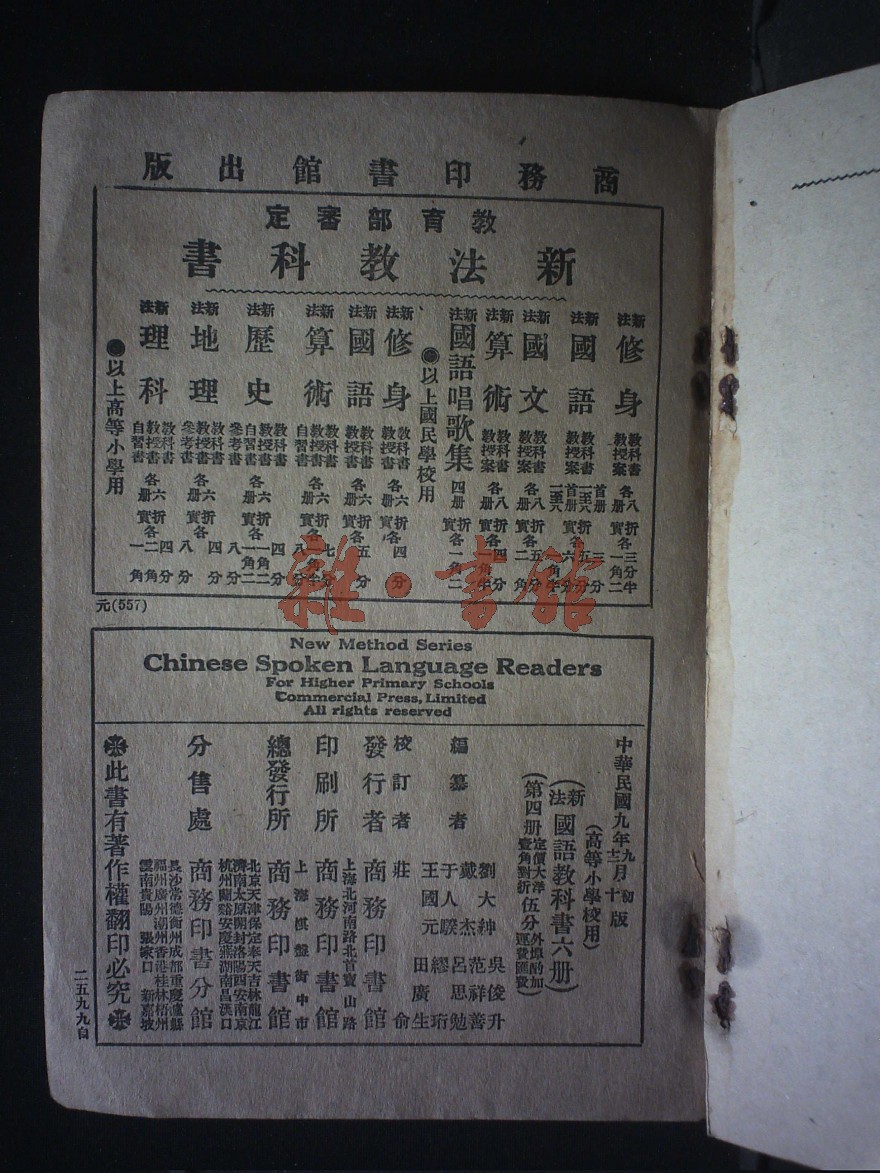 商務印書館出版
教育部審定
新法教科書
新法修身 教科書 教授案 各八册 實折各 三分半 一角二
新法國語 教科書 教授案 首册 一至六 首册 一至六 實折各 三分 五分 六分
新法國文 教科書 教授案 各八册 實折各 五分 二角
新法算術 教科書 教授案 各八册 實折各 四分
新法國語唱歌集 四册 實折各一角二
●以上國民學校用
新法修身 教科書 教授書 各六册 實折各 四分
新法國語 教科書 教授書 各六册 實折各 五分
新法算術 教科書 教授書 自習書 各六册 實折各
新法歷史 教科書 教授書 自習書 參考書 各六册 實折各 四分 一角二 一角二 八分
新法地理 教科書 教授書 參考書 各六册 實折各 四分 八分
新法理科 教科書 教授書 自習書 各六册 實折各 二角 一角
●以上高等小學用
元(557)
雜·書館
New Method Series
Chinese Spoken Language Readers
For Higher Primary Schools
Commercial Press, Limited
All rights reserved
中華民國九年九月初版
十二月十版
(高等小學校用)
(新法國語教科書六册)
(第四册定價大洋壹角對折伍分外埠酌加運費匯費)
編纂者 劉大紳 吳俊升 戴杰 范祥善 于人騤 呂思勉 王國元 繆珩 田廣生
校訂者 莊俞
發行者 商務印書館
上海北河南路北首寶山路
印刷所 商務印書館
上海棋盤街中市
總發行所 商務印書館
北京天津保定奉天吉林龍江
濟南太原開封洛陽西安南京
杭州蘭谿安慶蕪湖南昌漢口
分售處 商務印書分館
長沙常德衡州成都重慶瀘縣
福州廣州潮州香港桂林梧州
雲南貴陽 張家口 新嘉坡
此書有著作權翻印必究
二五九九自